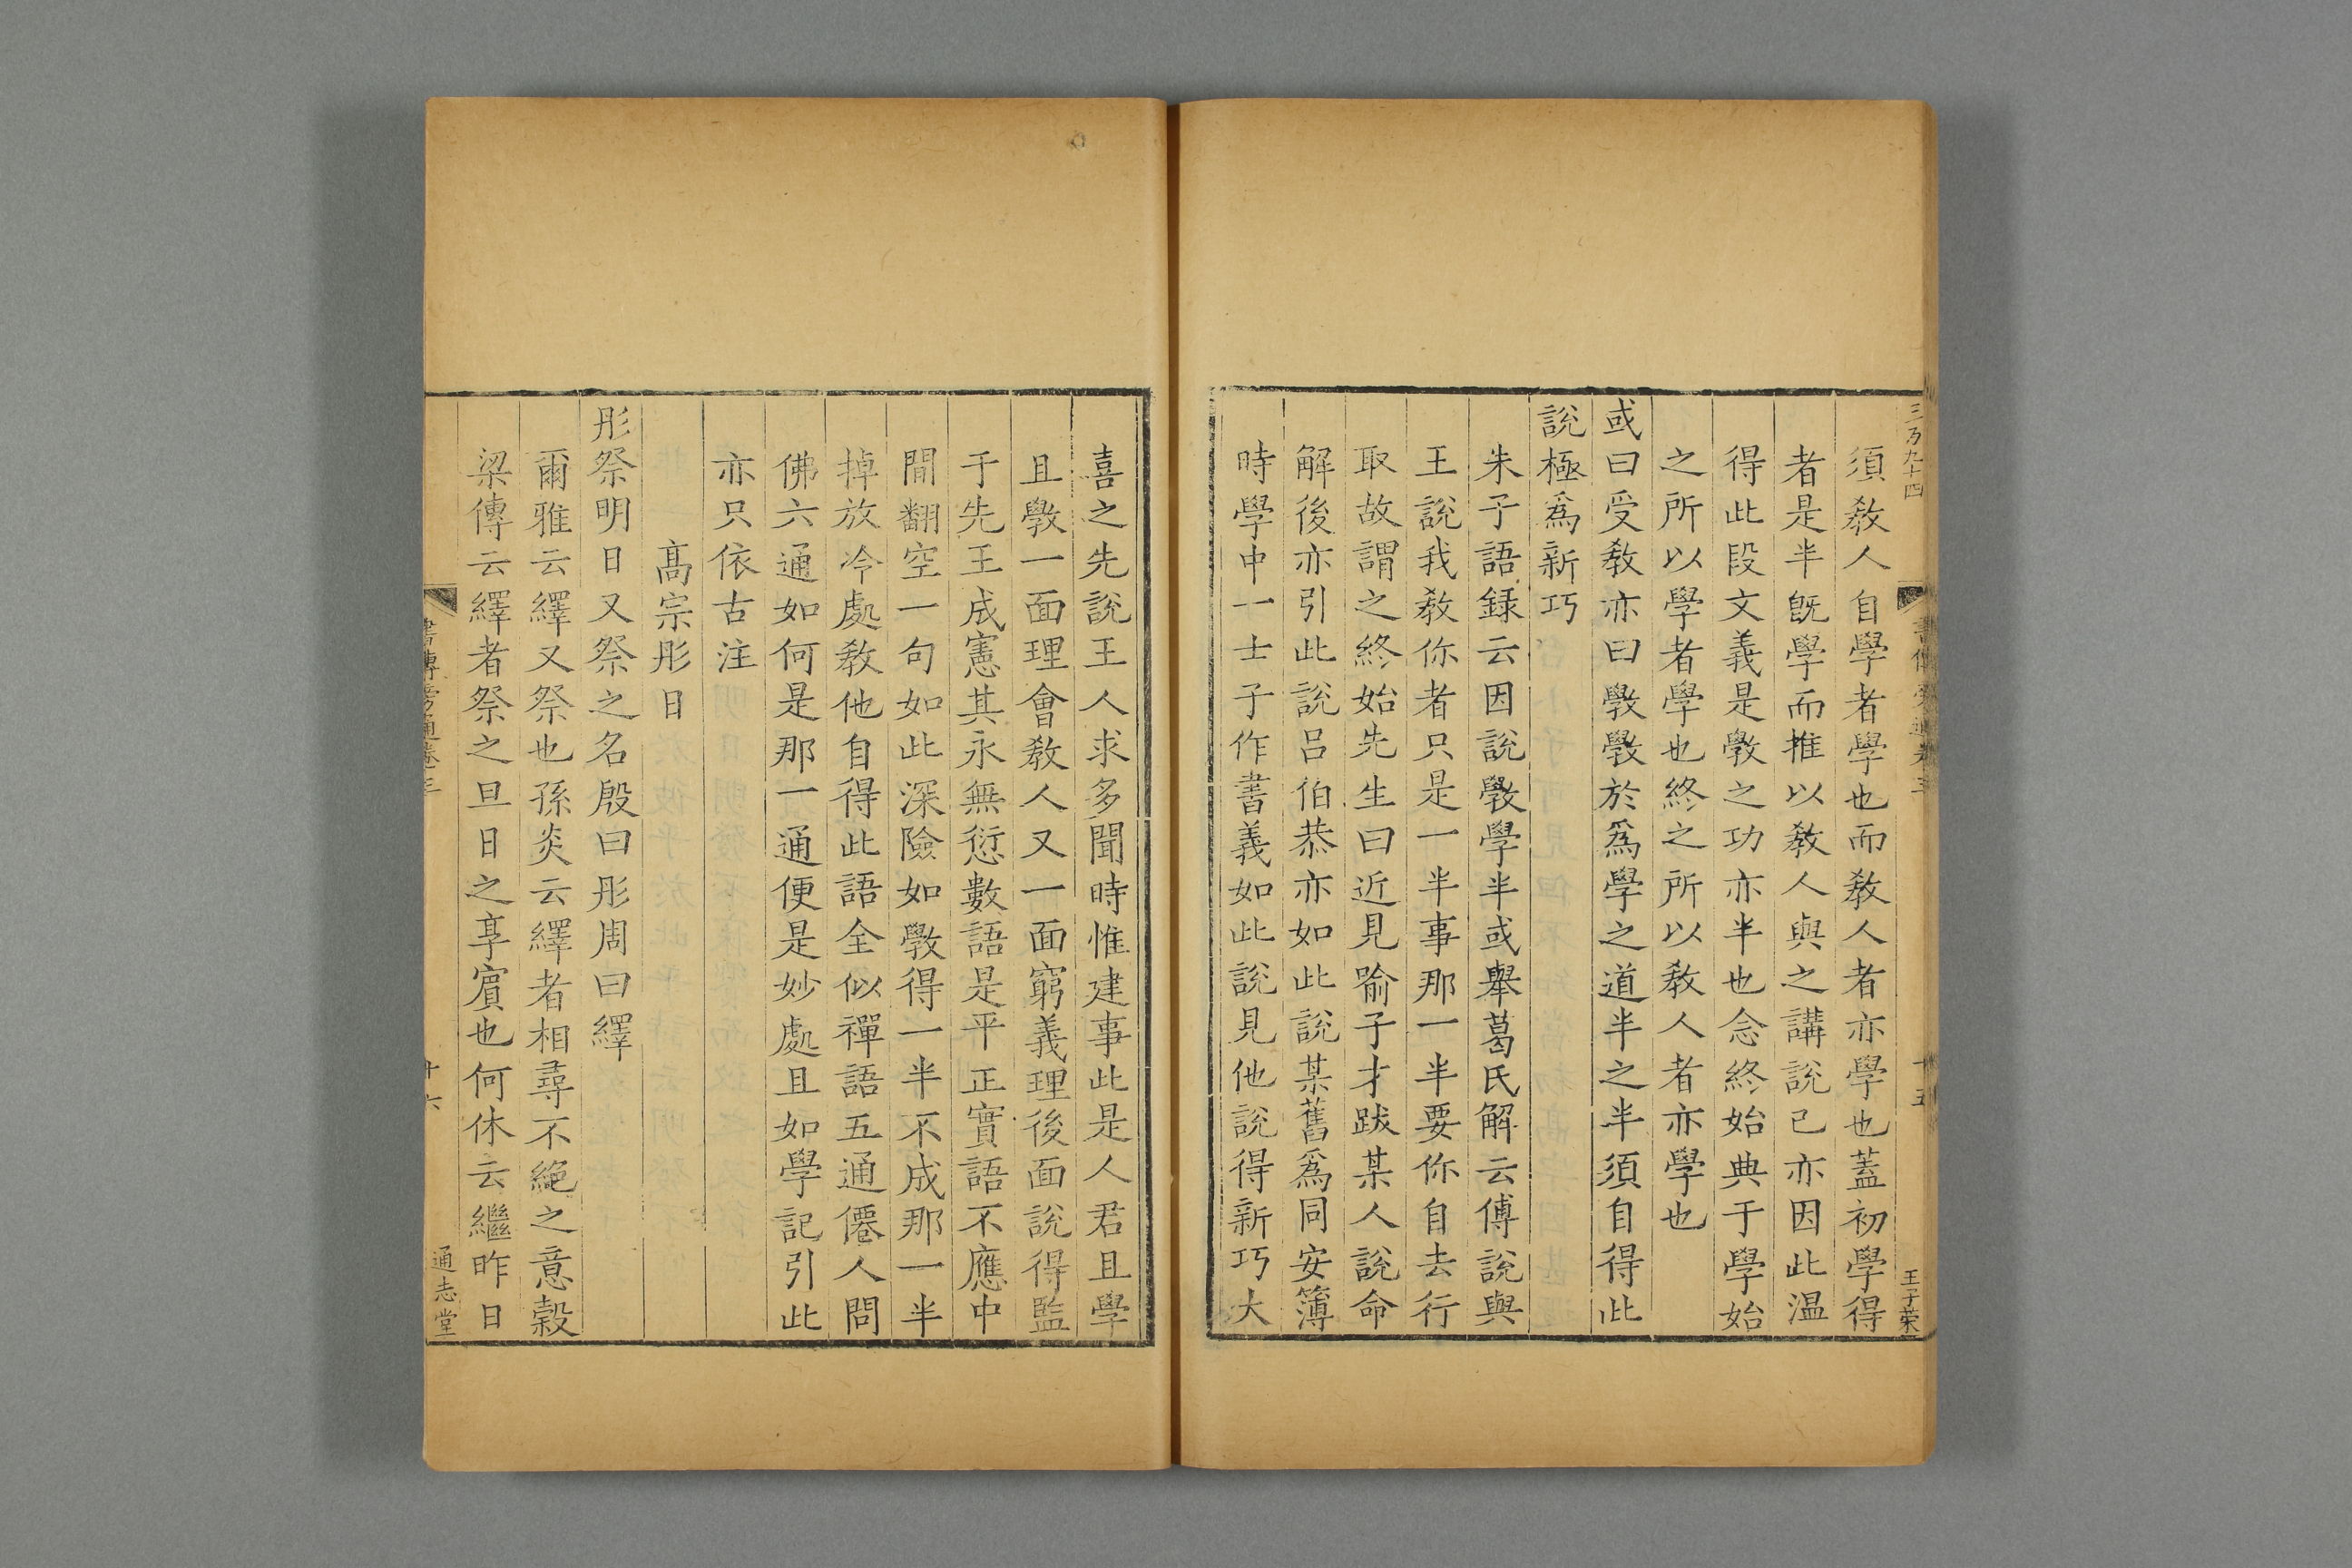 三百九十四
書傳旁通卷三
十五
王子榮
須教人自學者學也而教人者亦學也蓋初學得
者是半旣學而推以教人與之講說已亦因此温
得此段文義是斆之功亦半也念終始典于學始
之所以學者學也終之所以教人者亦學也
或曰受教亦曰斆斆於爲學之道半之半須自得此
說極爲新巧
朱子語録云因說斆學半或舉葛氏解云傅說與
王說我教你者只是一半事那一半要你自去行
取故謂之終始先生曰近見喻子才跋某人說命
解後亦引此說呂伯恭亦如此說某舊爲同安簿
時學中一士子作書義如此說見他說得新巧大
喜之先說王人求多聞時惟建事此是人君且學
且斆一面理會教人又一面窮義理後面說得監
于先王成憲其永無愆數語是平正實語不應中
間翻空一句如此深險如斆得一半不成那一半
掉放冷處教他自得此語全似禪語五通僊人問
佛六通如何是那一通便是妙處且如學記引此
亦只依古注
髙宗肜日
肜祭明日又祭之名殷曰肜周曰繹
爾雅云繹又祭也孫炎云繹者相尋不絕之意榖
梁傳云繹者祭之旦日之享賓也何休云繼昨日
書傳旁通卷三
十六
通志堂